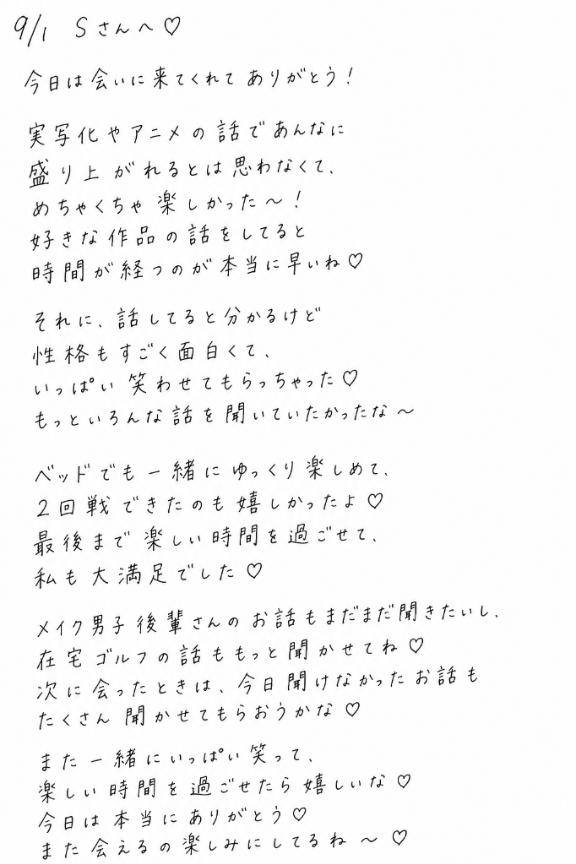 9/1 Sさんへ♡
今日は会いに来てくれてありがとう！
実写化やアニメの話であんなに
盛り上がれるとは思わなくて、
めちゃくちゃ楽しかった～！
好きな作品の話をしてると
時間が経つのが本当に早いね♡
それに、話してると分かるけど
性格もすごく面白くて、
いっぱい笑わせてもらっちゃった♡
もっといろんな話を聞いていたかったな～
ベッドでも一緒にゆっくり楽しめて、
2回戦できたのも嬉しかったよ♡
最後まで楽しい時間を過ごせて、
私も大満足でした♡
メイク男子後輩さんのお話もまだまだ聞きたいし、
在宅ゴルフの話ももっと聞かせてね♡
次に会ったときは、今日聞けなかったお話も
たくさん聞かせてもらおうかな♡
また一緒にいっぱい笑って、
楽しい時間を過ごせたら嬉しいな♡
今日は本当にありがとう♡
また会えるの楽しみにしてるね～♡